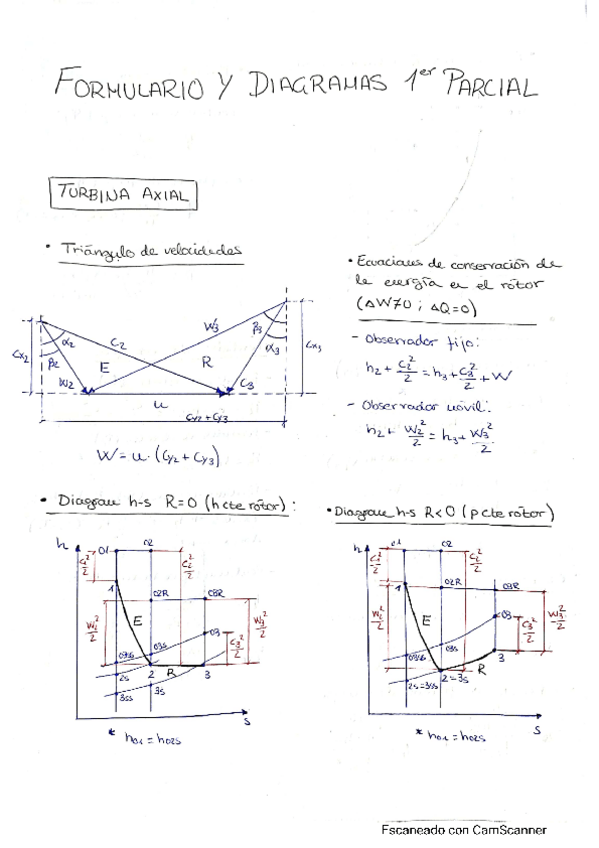 FORMULARIO Y DIAGRAMAS 1er PARCIAL
TURBINA AXIAL
• Triángulo de velocidades
Cx2
α2
β2
W2
C2
E
W3
R
β3
α3
C3
Cx3
u
Cy2 + Cy3
W = u · (Cy2 + Cy3)
• Ecuaciones de conservación de
la energía en el rótor
(ΔW≠0 ; ΔQ=0)
- Observador fijo:
h2 + C2²/2 = h3 + C3²/2 + W
- Observador móvil:
h2 + W2²/2 = h3 + W3²/2
• Diagram h-s R=0 (h cte rótor) :
h
01
02
1
02R
03R
E
03
03s
03ss
2s
2
R
3
3ss
3s
W2²/2
W3²/2
C3²/2
s
* h01 = h02s
• Diagram h-s R<0 (p cte rótor)
h
01
02
1
02R
03R
E
03
03s
03ss
3
R
2=3s
2s=3ss
W2²/2
W3²/2
C3²/2
s
* h01 = h02s
Escaneado con CamScanner